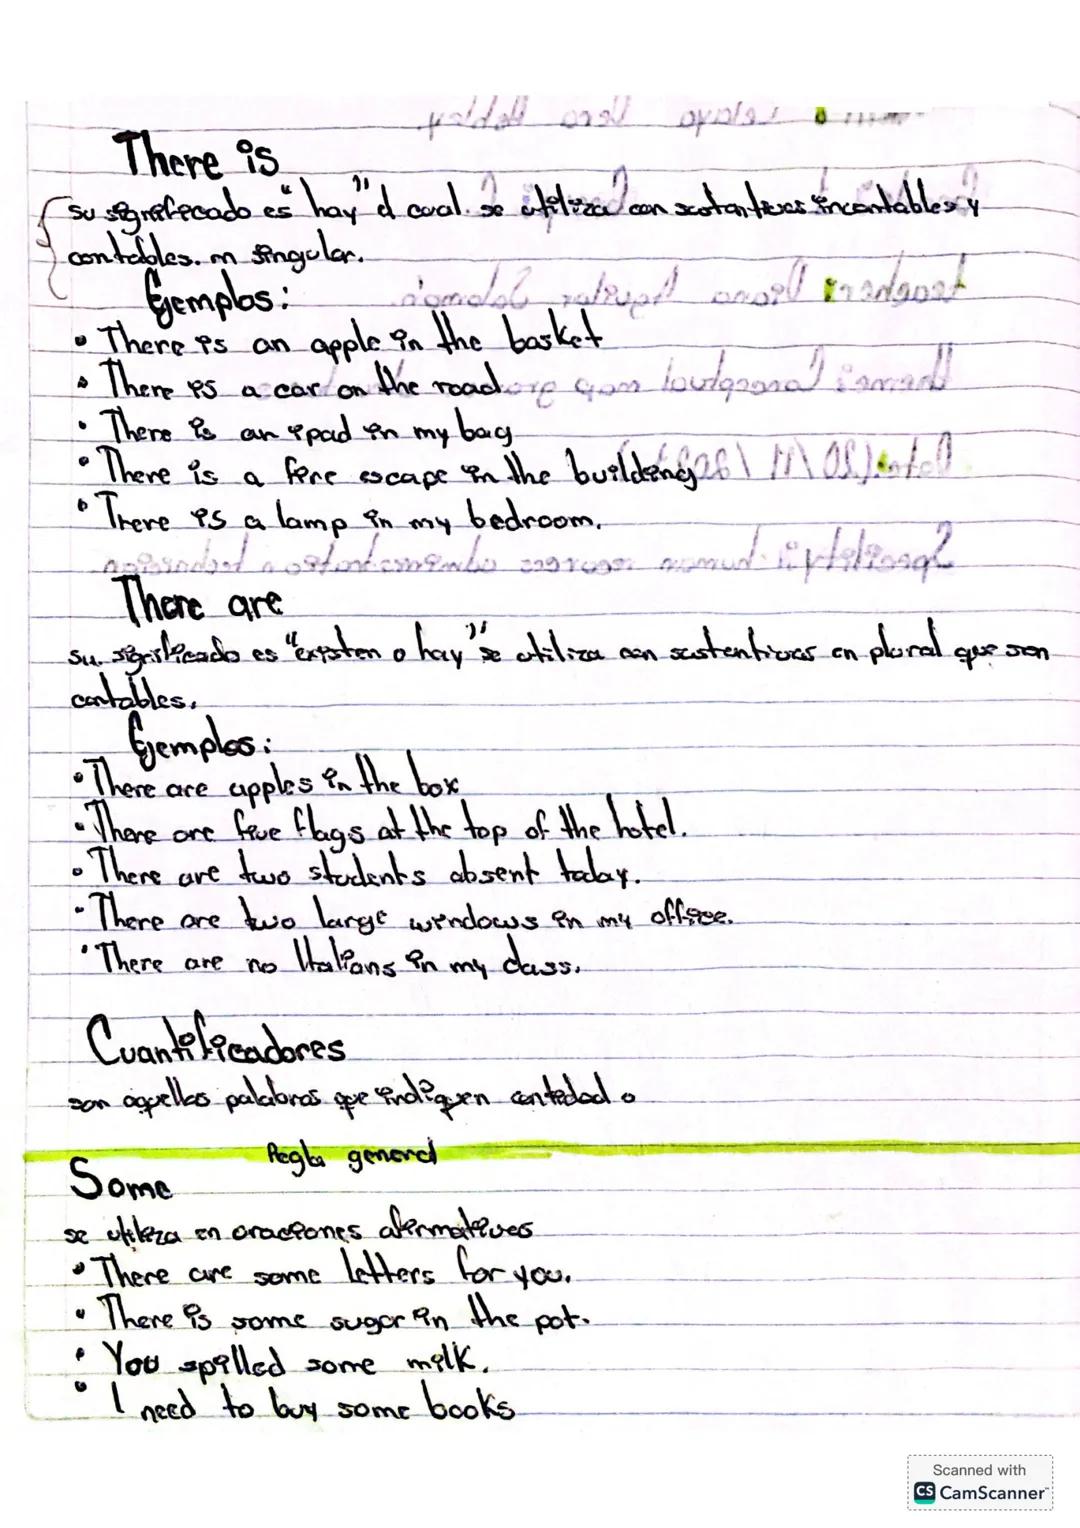 There is
su significado es "hay" el cual se utiliza con sustantivos incontables y
contables. en singular.
Ejemplos:
• There is an apple in the basket
• There is a car on the road
• There is an ipad in my bag
• There is a fire escape in the building
• There is a lamp in my bedroom.
There are
su significado es "existen o hay" se utiliza con sustantivos en plural que son
contables.
Ejemplos:
• There are apples in the box
• There are five flags at the top of the hotel.
• There are two students absent today.
• There are two large windows in my office.
• There are no Italians in my class.
Cuantificadores
son aquellas palabras que indiquen cantidad o
Regla general
Some
se utiliza en oraciones afirmativas
• There are some letters for you.
• There is some sugar in the pot.
• You spilled some milk.
• I need to buy some books
Scanned with
CS CamScanner